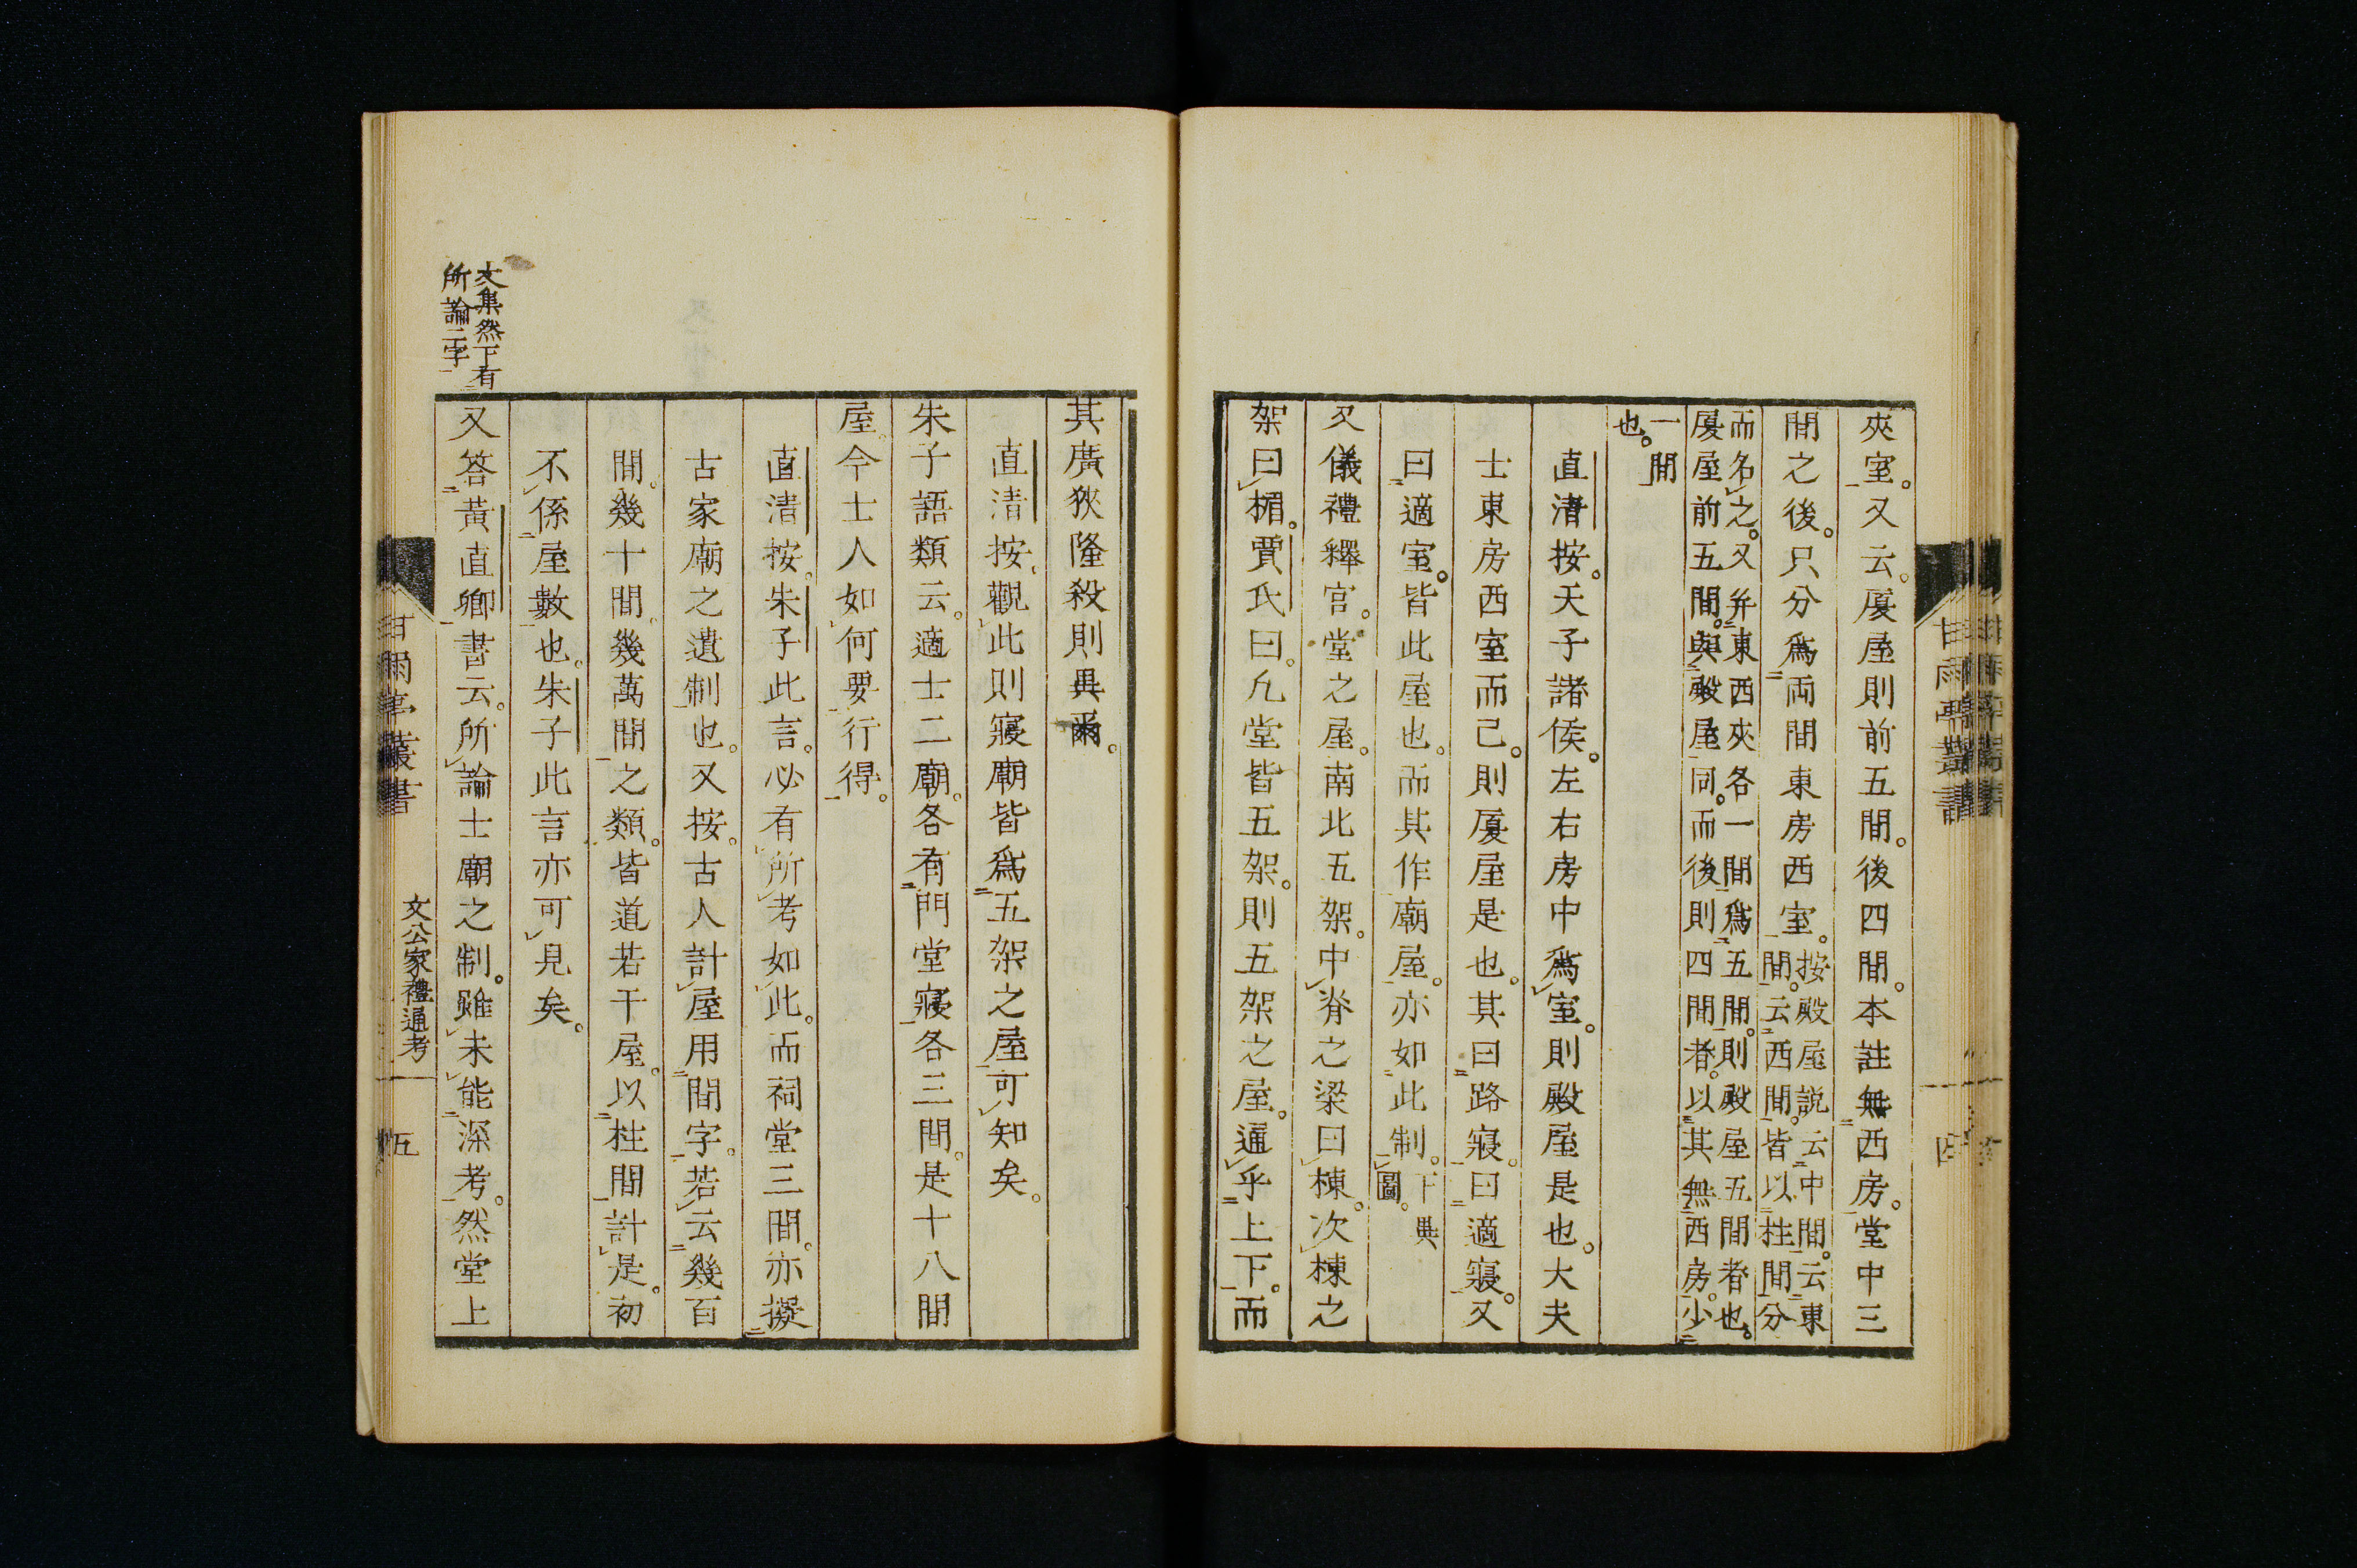 夾室。又云。厦屋則前五間。後四間。本註無西房。堂中三
間之後。只分爲両間東房西室。按殿屋説云中間。云東
間。云西間。皆以柱間分
而名之。又并東西夾各一間爲五間。則殿屋五間者也。
厦屋前五間。與殿屋同。而後則四間者。以其無西房。少
一間
也。
直清按。天子諸侯。左右房中爲室。則殿屋是也。大夫
士東房西室而已。則厦屋是也。其曰路寢。曰適寢。又
曰適室。皆此屋也。而其作廟屋。亦如此制。下具
圖。
又儀禮釋宮。堂之屋。南北五架。中脊之梁曰棟。次棟之
架曰楣。賈氏曰。凢堂皆五架。則五架之屋。通乎上下。而
甘雨亭叢書
四
其廣狹隆殺則異爾。
直清按。觀此則寢廟皆爲五架之屋可知矣。
朱子語類云。適士二廟。各有門堂寢各三間。是十八間
屋。今士人如何要行得。
直清按。朱子此言。必有所考如此。而祠堂三間。亦擬
古家廟之遺制也。又按。古人計屋用間字。若云幾百
間。幾十間。幾萬間之類。皆道若干屋。以柱間計是。初
不係屋數也。朱子此言亦可見矣。
又答黃直卿書云。所論士廟之制。雖未能深考。然堂上
文集然下有
所論二字
甘雨亭叢書
文公家禮通考
五